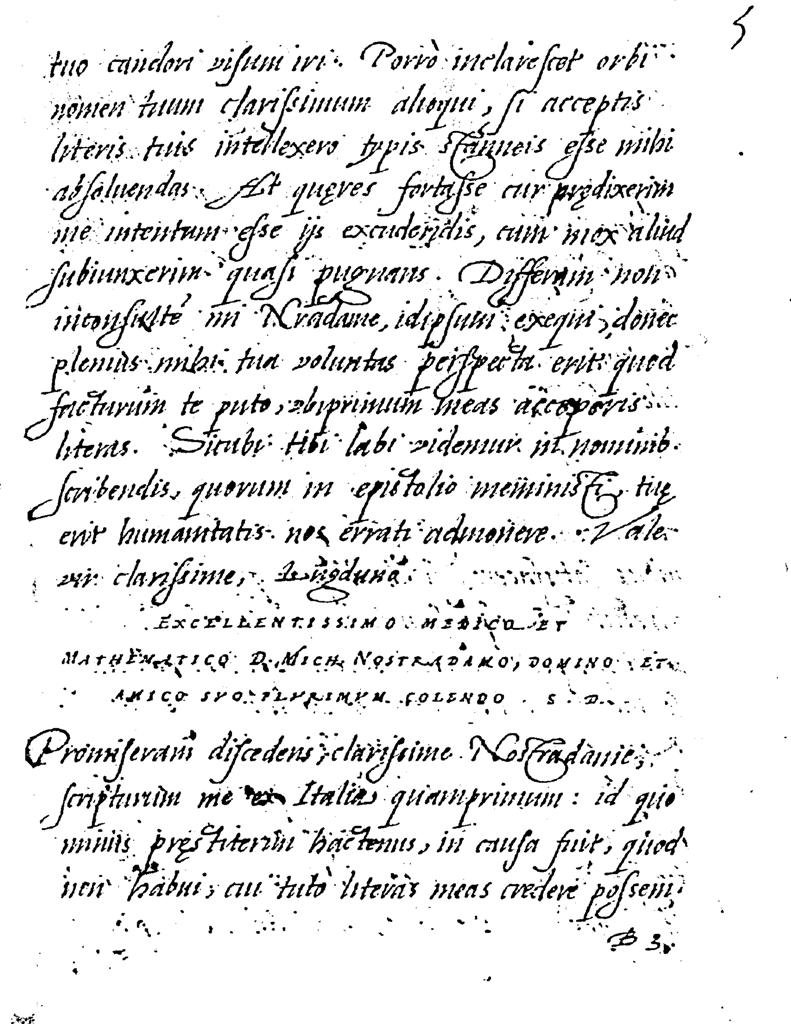 5
tuo candori visum iri. Porrò inclarescet orbi
nomen tuum clarissimum alioqui, si acceptis
literis tuis intellexero typis stanneis esse mihi
absoluendas. At quęres fortasse cur prędixerim
me intentum esse ijs excudendis, cum mox aliud
subiunxerim quasi pugnans. Differam non
inconsultè mi Nradame, idipsum exequi, donec
plenius mihi tua voluntas perspecta erit: quod
facturum te puto, vbiprimum meas acceperis
literas. Sicubi tibi labi videmur in nominib.
scribendis, quorum in epistolio meministi, tuę
erit humanitatis nos errati admonere. Vale
vir clarissime, Lugduno.
EXCELLENTISSIMO MEDICO ET
MATHEMATICO D. MICH. NOSTRADAMO, DOMINO ET
AMICO SVO PLVRIMVM COLENDO S. D.
Promiseram discedens, clarissime Nostradame,
scripturum me ex Italia quamprimum: id quo
minus pręstiterim hactenus, in causa fuit, quod
non habui, cui tutò literas meas credere possem,
B 3.